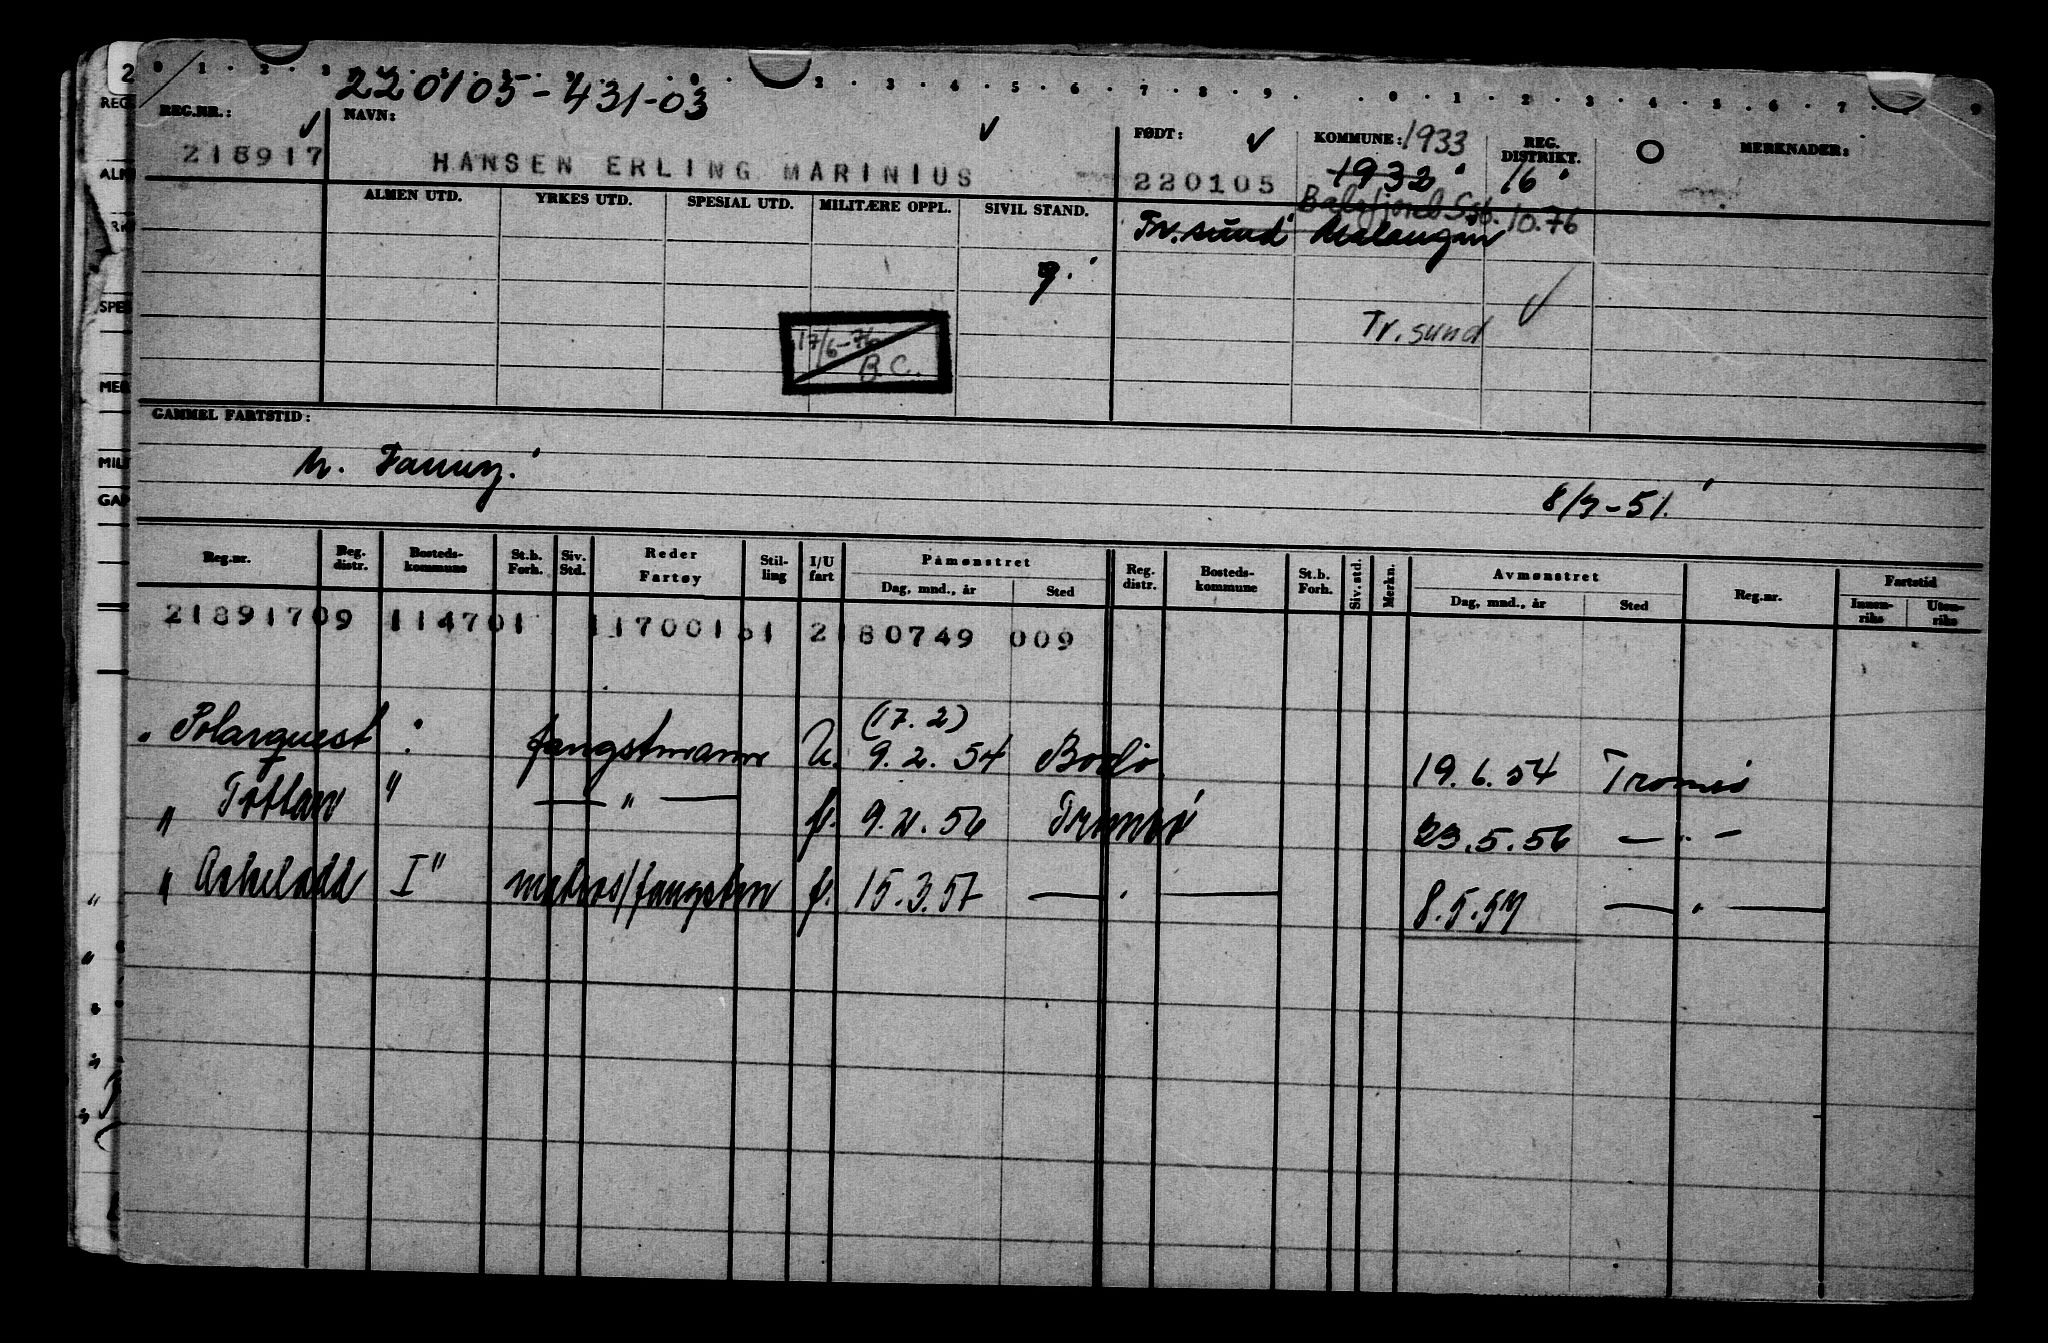 220105-431-03
REG.NR.: NAVN: FØDT: KOMMUNE: 1933 REG. DISTRIKT. MERKNADER:
218917 HANSEN ERLING MARINIUS 220105 1932 16
ALMEN UTD. YRKES UTD. SPESIAL UTD. MILITÆRE OPPL. SIVIL STAND.
Balsfjord 10.76
Tr.sund Malangen
g.
Tr. sund
17/6-76
B.C.
GAMMEL FARTSTID:
8/9-51.
Reg.nr. Reg. distr. Bosteds- kommune St.b. Forh. Siv. Std. Reder Fartøy Stil- ling I/U fart Påmønstret Reg. distr. Bosteds- kommune St.b. Forh. Siv. std. Merkn. Avmønstret Reg.nr. Fartstid
Dag, mnd., år Sted Dag, mnd., år Sted Innen- riks Uten- riks
21891709 114701 11700161 2180749 009
(17.2)
"Polarquest" fangstmann U. 9.2.54 Bodø 19.6.54 Tromsø
"Tottan" — " — f. 9.2.56 Tromsø 23.5.56 — " —
"Askeladd I" matros/fangstm f. 15.3.57 — " — 8.5.57 — " —